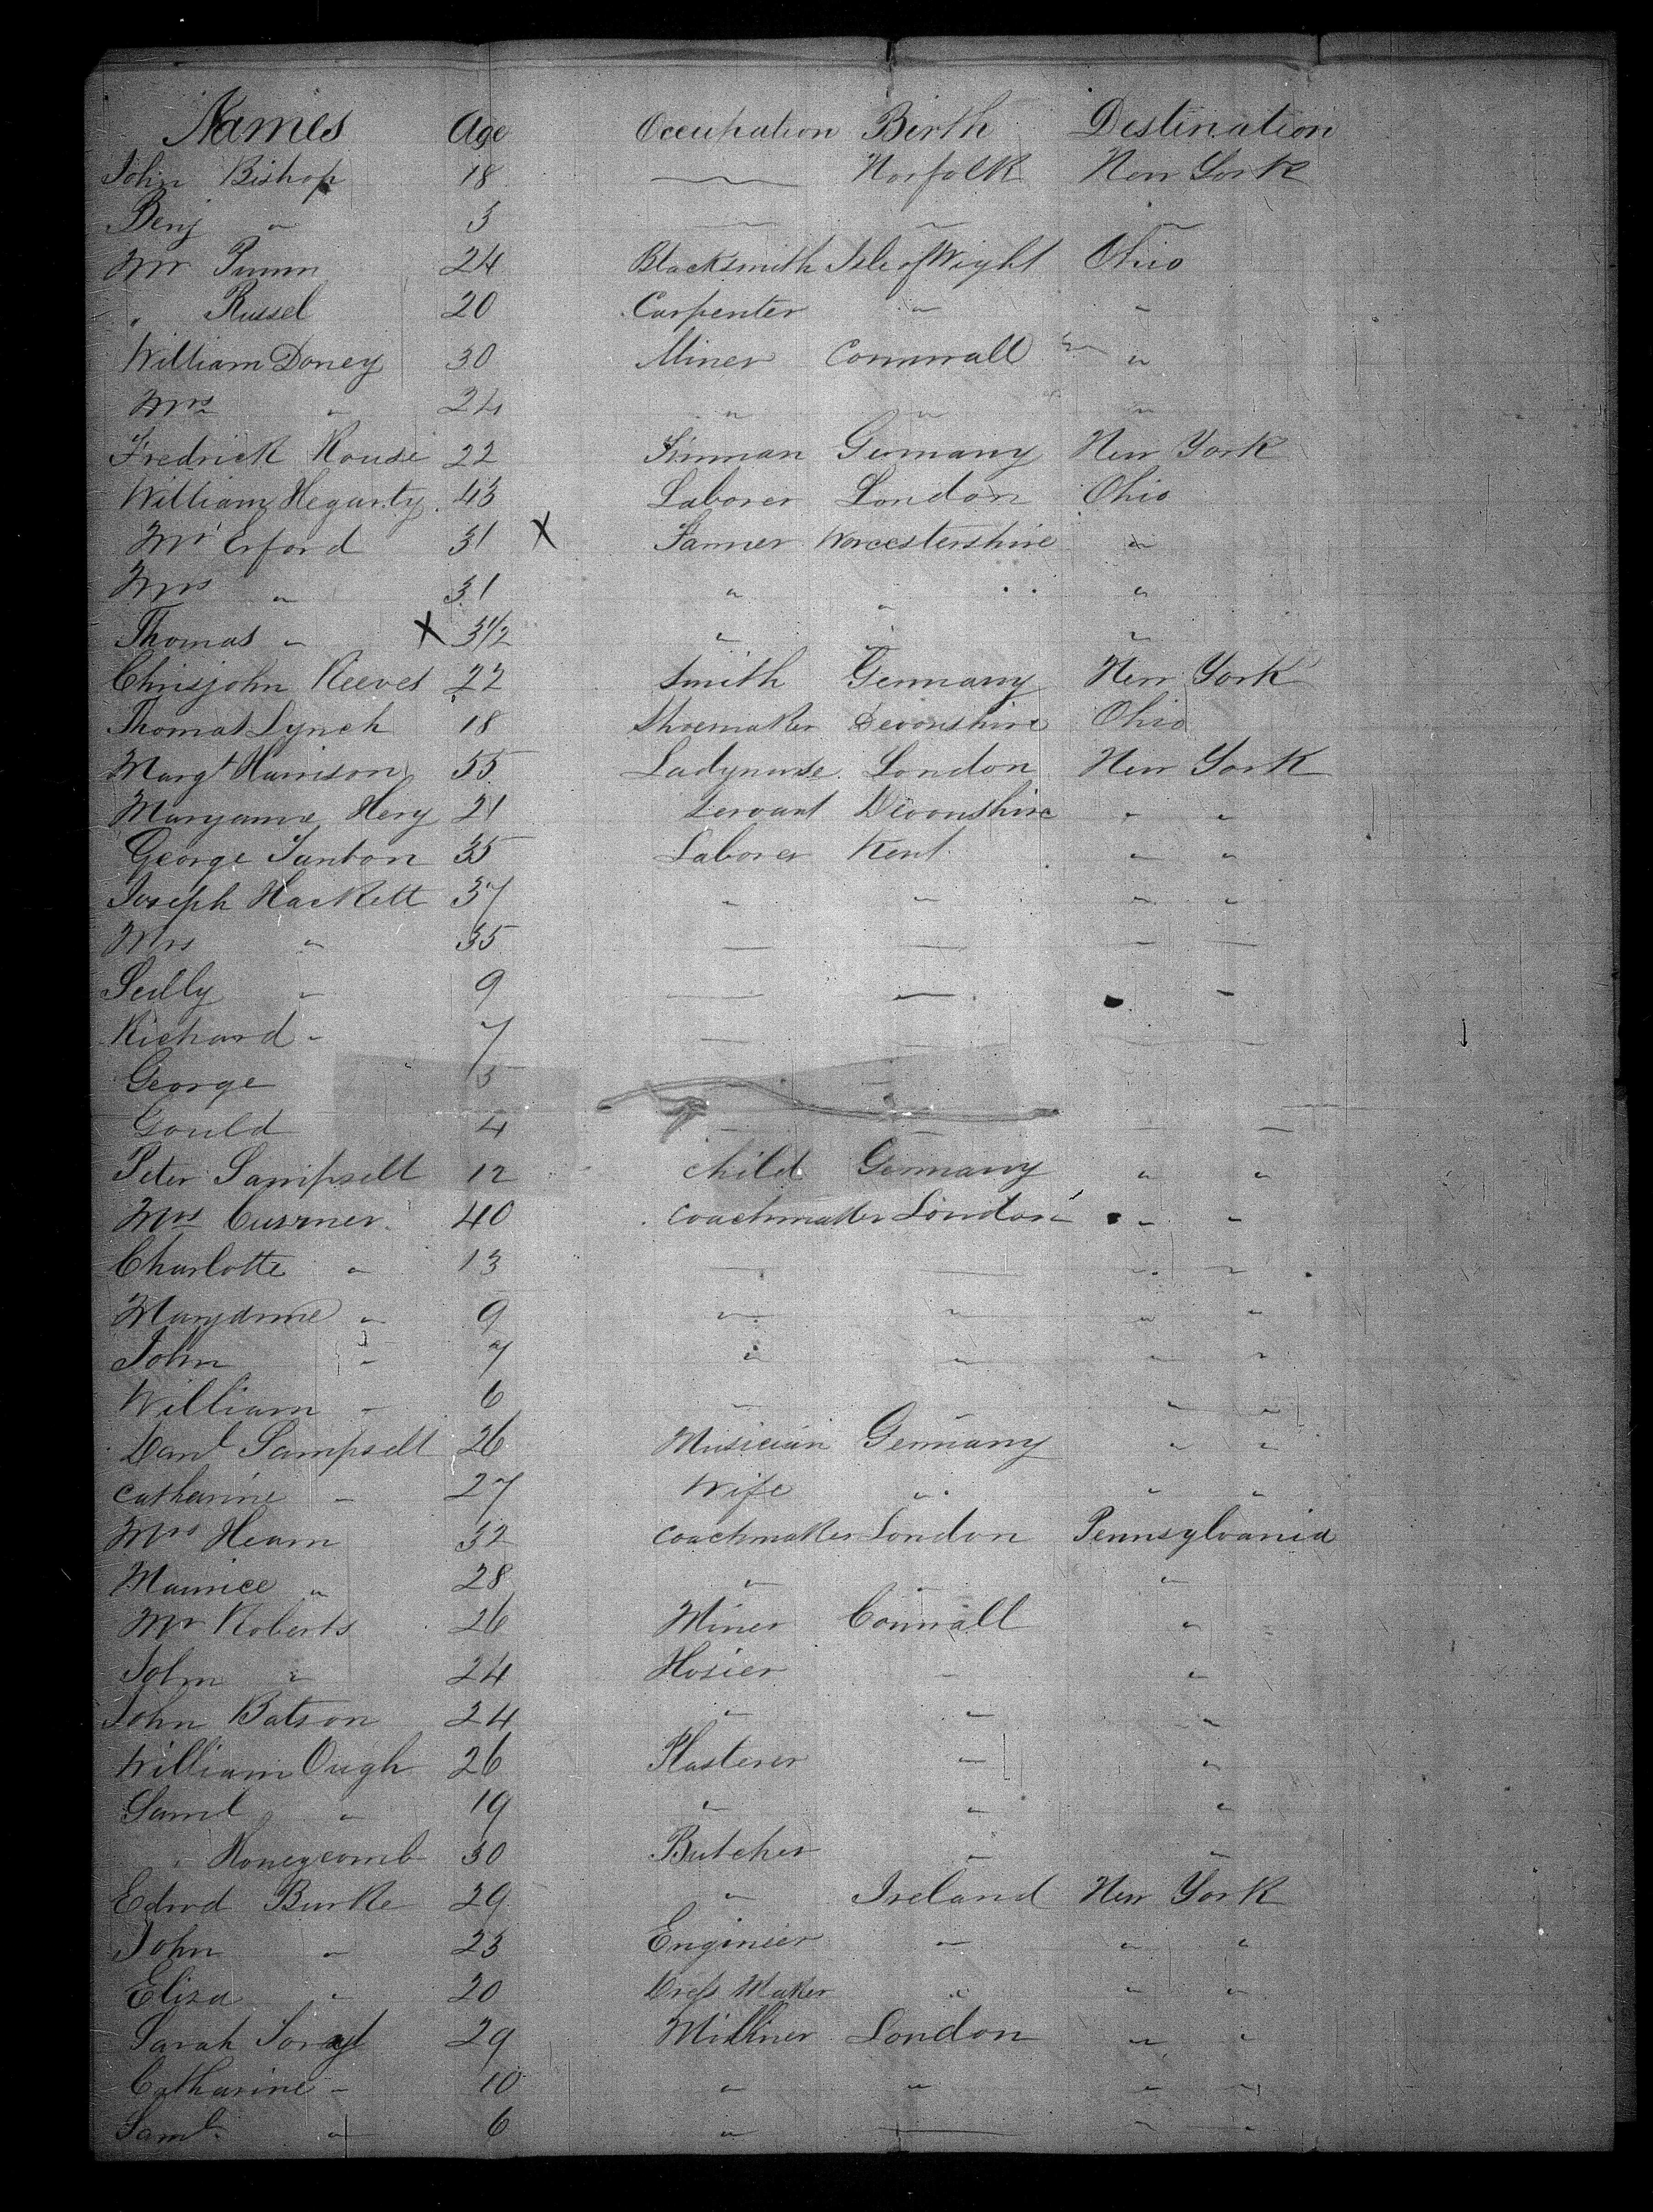 Names Age Occupation Birth Destination
John Bishop 18 — Norfolk New York
Benj " 3 — — —
Mr Pumm 24 Blacksmith Isle of Wight Ohio
" Russel 20 Carpenter " "
William Doney 30 Miner Cornwall "
Mrs " 24 " " "
Fredrick Rouse 22 Tinman Germany New York
William Hegarty 43 Laborer London Ohio
Mr Erford 31 X Farmer Worcestershire "
Mrs " 31 " " "
Thomas " X 3 1/2 " " "
Chrisjohn Reeves 22 Smith Germany New York
Thomas Lynch 18 Shoemaker Devonshire Ohio
Margt Harrison 55 Ladynurse London New York
Maryanne Hery 21 Servant Devonshire " "
George Tanton 35 Laborer Kent " "
Joseph Hackett 37 " " " "
Mrs " 35 — — — —
Selly " 9 — — " "
Richard " 7 — — — —
George 5 — —
Gould 4 — — — —
Peter Sampselt 12 child Germany " "
Mrs Cusrner 40 Coachmaker London " "
Charlotte " 13 — — " "
Maryanne " 9 " " " "
John " 7 " " " "
William " 6 — — " "
Danl Sampselt 26 Musician Germany " "
Catharine " 27 Wife " " "
Mrs Hearn 32 Coachmaker London Pennsylvania
Maurice " 28 " " "
Mr Roberts 26 Miner Cornwall "
John " 24 Hosier " "
John Batson 24 " " "
William Ough 26 Plasterer " "
Saml " 19 " " "
" Honeycomb 30 Butcher " "
Edwd Burke 29 " Ireland New York
John " 23 Engineer " " "
Eliza " 20 Dress Maker " " "
Sarah 29 Milliner London " "
Catharine " 10 " " " "
Saml " 6 " — " "